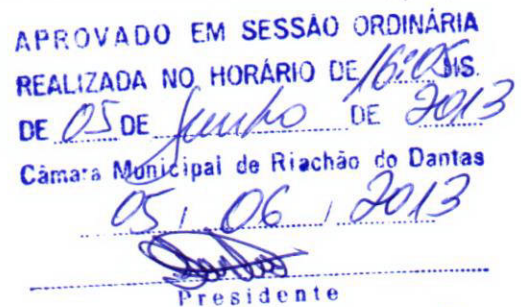 APROVADO EM SESSÃO ORDINÁRIA
REALIZADA NO HORÁRIO DE 16:05 HS.
DE 05 DE Junho DE 2013
Câmara Municipal de Riachão do Dantas
05 / 06 / 2013
Presidente